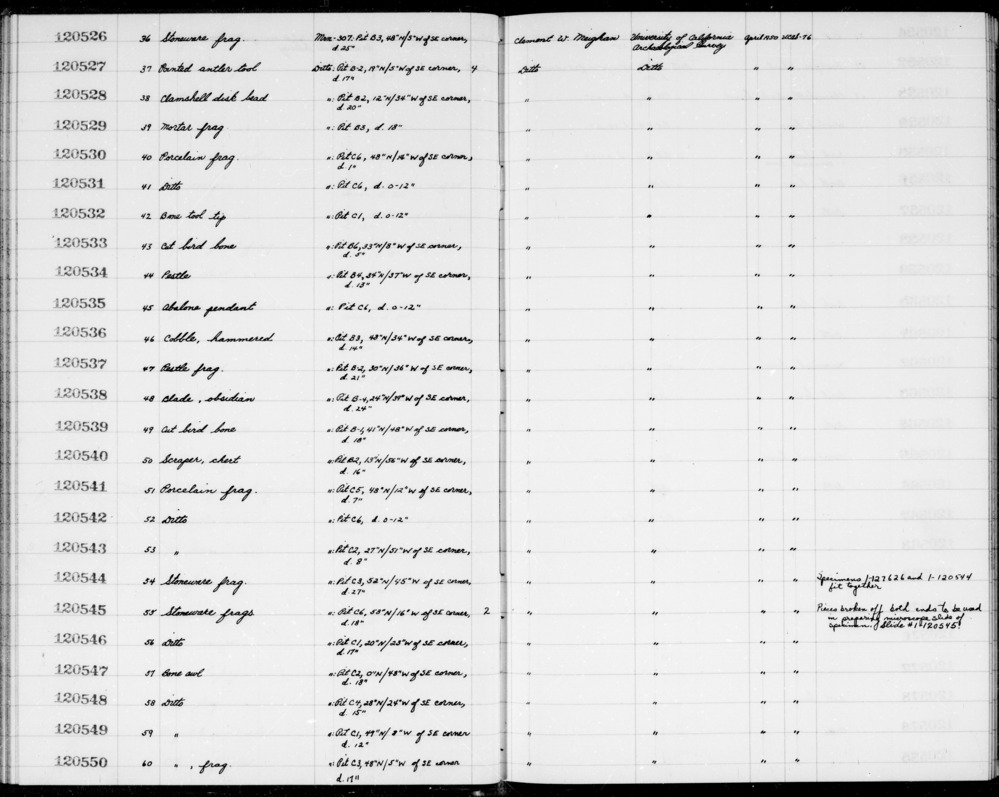 120526 36 Stoneware frag. Mrn-307: Pit B3, 48"N/3"W of SE corner, Clement W. Meighan University of California April 1950 UCAS-76
d. 25" Archaeological Survey
120527 37 Pointed antler tool Ditto: Pit B-2, 19"N/5"W of SE corner, 4 Ditto Ditto " "
d. 17"
120528 38 Clamshell disk bead ": Pit B2, 12"N/34"W of SE corner, " " " "
d. 20"
120529 39 Mortar frag ": Pit B3, d. 18" " " " "
120530 40 Porcelain frag. ": Pit C6, 48"N/16"W of SE corner, " " " "
d. 1"
120531 41 Ditto ": Pit C6, d. 0-12" " " " "
120532 42 Bone tool tip ": Pit C1, d. 0-12" " " " "
120533 43 Cut bird bone ": Pit B6, 33"N/8"W of SE corner, " " " "
d. 5"
120534 44 Pestle ": Pit B4, 34"N/37"W of SE corner, " " " "
d. 13"
120535 45 Abalone pendant ": Pit C6, d. 0-12" " " " "
120536 46 Cobble, hammered ": Pit B3, 48"N/34"W of SE corner, " " " "
d. 14"
120537 47 Pestle frag. ": Pit B-2, 30"N/36"W of SE corner, " " " "
d. 21"
120538 48 Blade, obsidian ": Pit B-4, 24"N/39"W of SE corner, " " " "
d. 24"
120539 49 Cut bird bone ": Pit B-1, 41"N/48"W of SE corner, " " " "
d. 18"
120540 50 Scraper, chert ": Pit B2, 13"N/56"W of SE corner, " " " "
d. 16"
120541 51 Porcelain frag. ": Pit C5, 48"N/12"W of SE corner, " " " "
d. 7"
120542 52 Ditto ": Pit C6, d. 0-12" " " " "
120543 53 " ": Pit C2, 27"N/51"W of SE corner, " " " "
d. 8"
120544 54 Stoneware frag. ": Pit C3, 52"N/45"W of SE corner, " " " " Specimens 1-127626 and 1-120544
d. 27" fit together
120545 55 Stoneware frags ": Pit C6, 53"N/16"W of SE corner, 2 " " " " Pieces broken off both ends to be used
d. 18" in preparing microscope slide of
specimen. Slide #1-120545.
120546 56 Ditto ": Pit C1, 20"N/23"W of SE corner, " " " "
d. 17"
120547 57 Bone awl ": Pit C2, 0"N/48"W of SE corner, " " " "
d. 18"
120548 58 Ditto ": Pit C4, 28"N/24"W of SE corner, " " " "
d. 15"
120549 59 " ": Pit C1, 49"N/8"W of SE corner " " " "
d. 12"
120550 60 ", frag. ": Pit C3, 48"N/5"W of SE corner " " " "
d. 19"